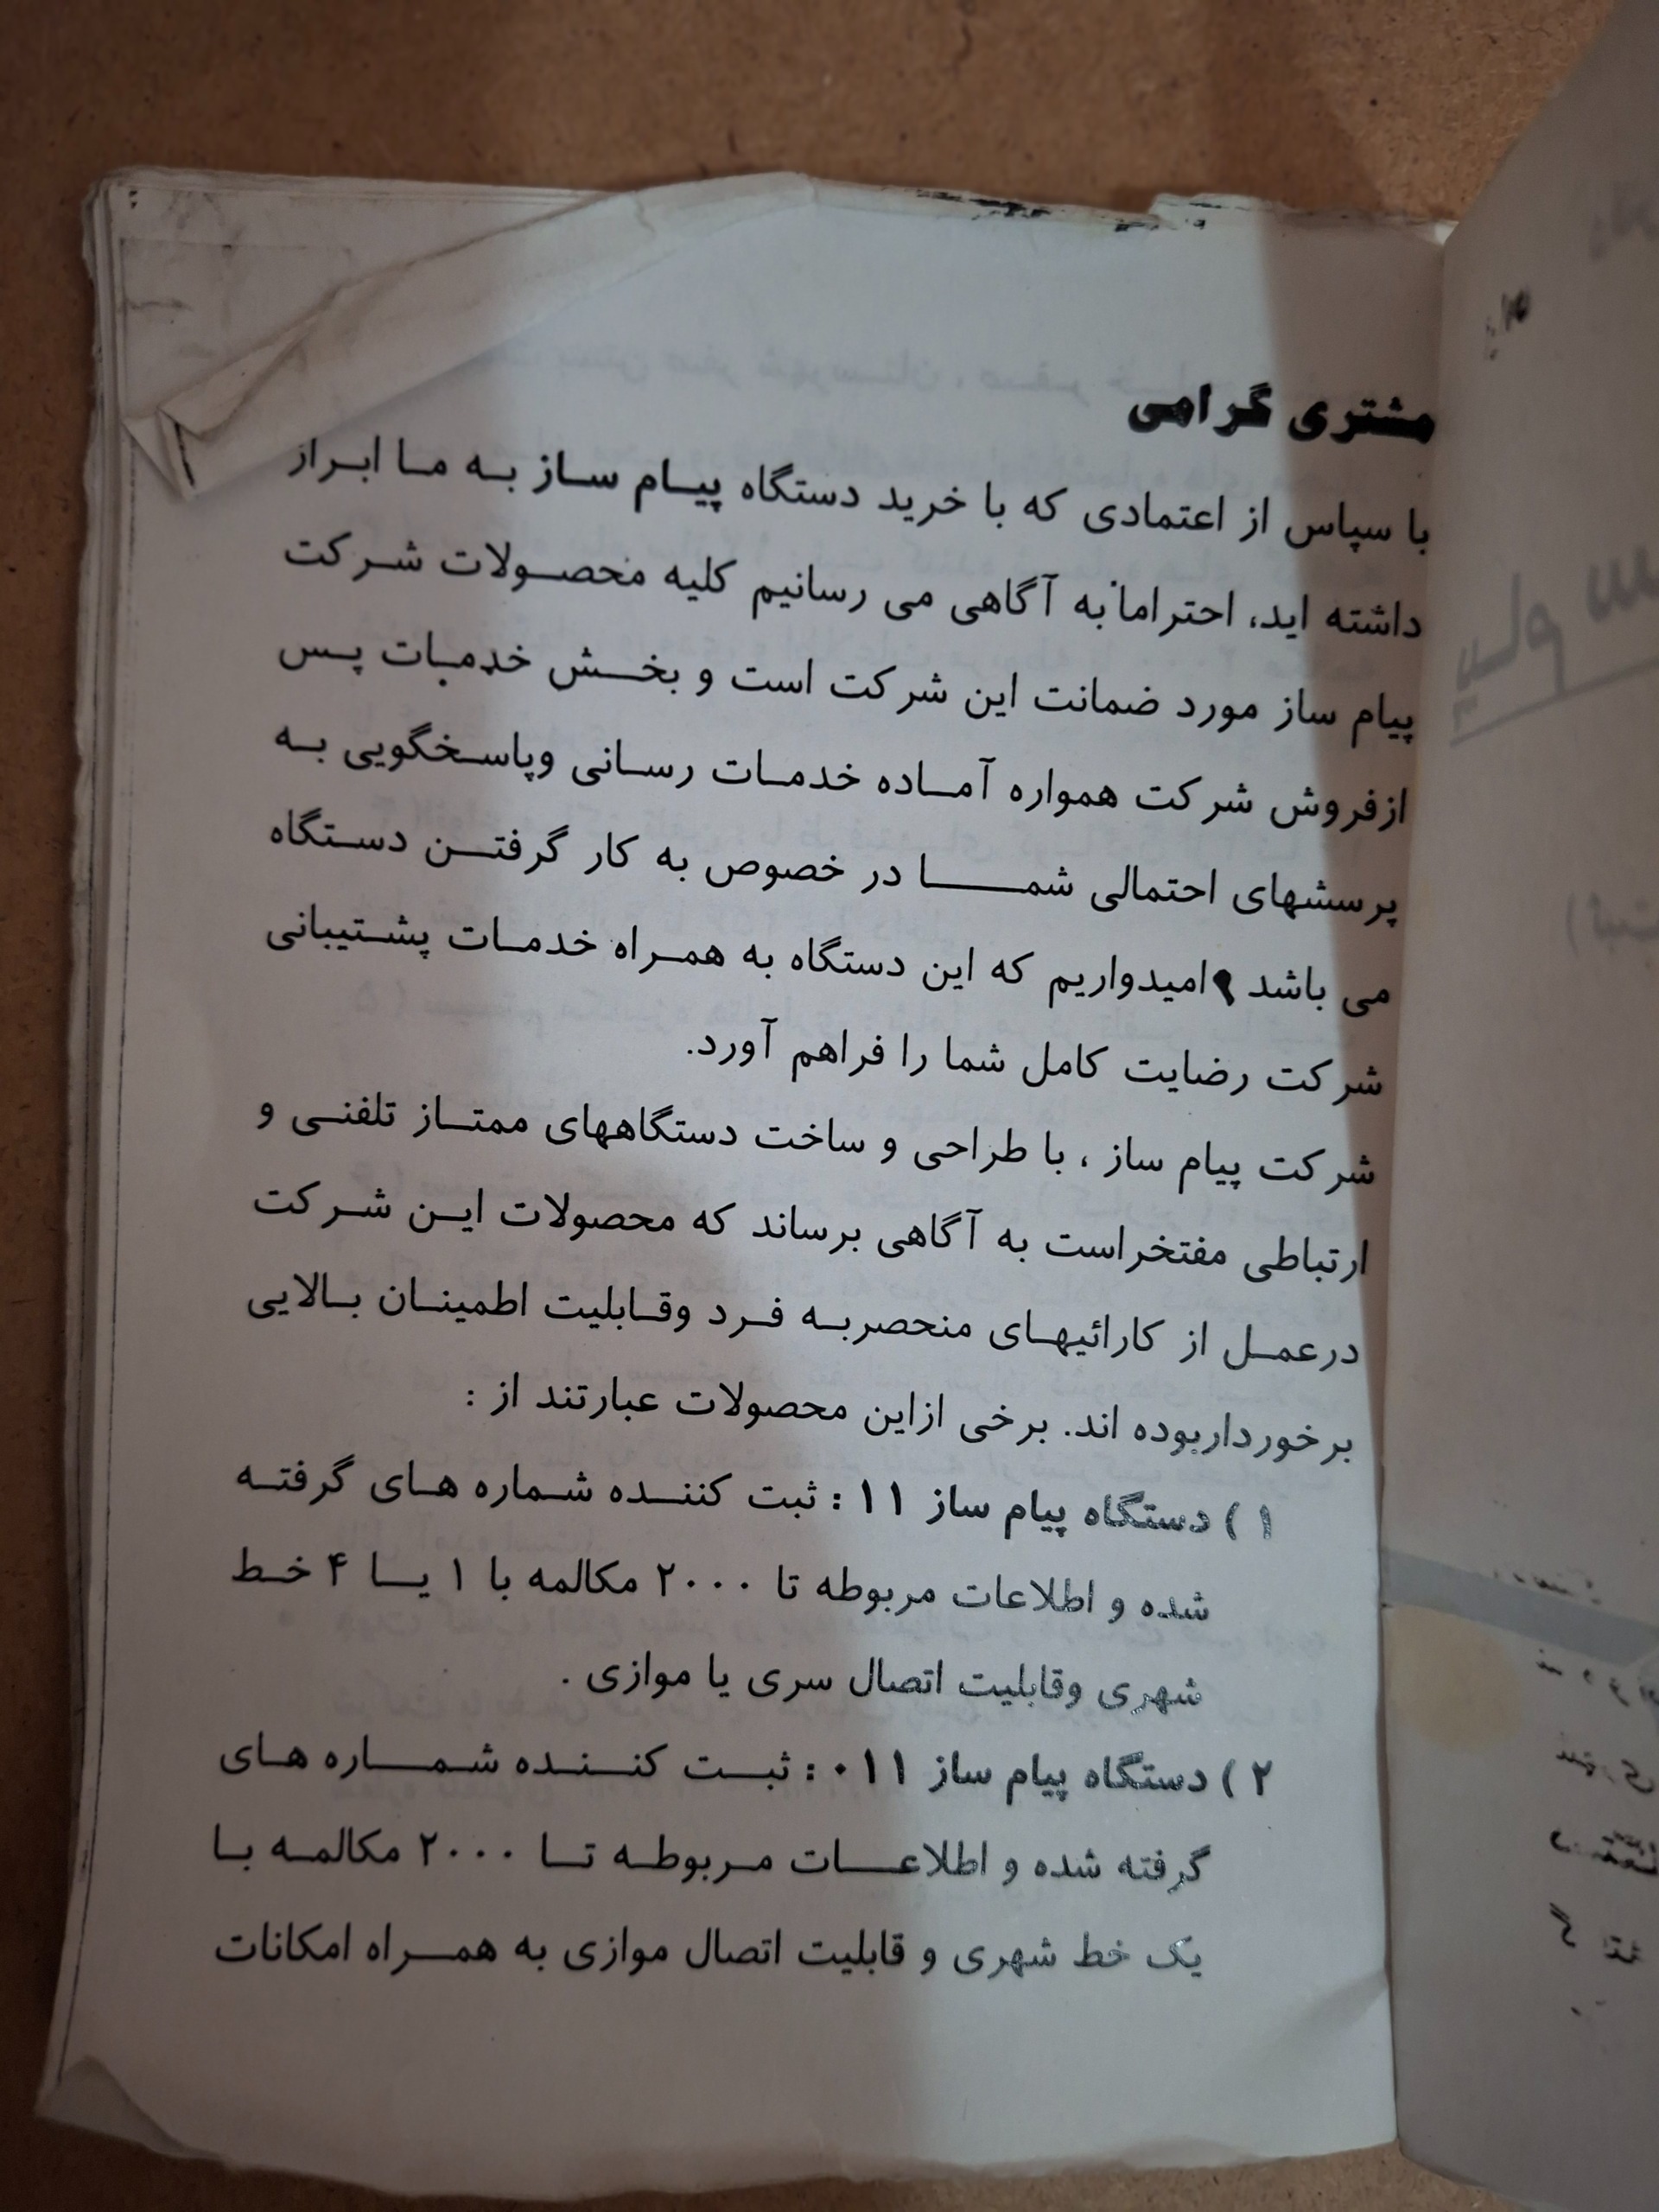 مشتری گرامی
با سپاس از اعتمادی که با خرید دستگاه پیام ساز به ما ابراز
داشته اید، احتراماً به آگاهی می رسانیم کلیه محصولات شرکت
پیام ساز مورد ضمانت این شرکت است و بخش خدمات پس
ازفروش شرکت همواره آماده خدمات رسانی وپاسخگویی به
پرسشهای احتمالی شما در خصوص به کار گرفتن دستگاه
می باشد و امیدواریم که این دستگاه به همراه خدمات پشتیبانی
شرکت رضایت کامل شما را فراهم آورد.
شرکت پیام ساز ، با طراحی و ساخت دستگاههای ممتاز تلفنی و
ارتباطی مفتخراست به آگاهی برساند که محصولات این شرکت
درعمل از کارائیهای منحصربه فرد وقابلیت اطمینان بالایی
برخورداربوده اند. برخی ازاین محصولات عبارتند از :
۱ ) دستگاه پیام ساز ۱۱ : ثبت کننده شماره های گرفته
شده و اطلاعات مربوطه تا ۲۰۰۰ مکالمه با ۱ یا ۴ خط
شهری وقابلیت اتصال سری یا موازی .
۲ ) دستگاه پیام ساز ۰۱۱ : ثبت کننده شماره های
گرفته شده و اطلاعات مربوطه تا ۲۰۰۰ مکالمه با
یک خط شهری و قابلیت اتصال موازی به همراه امکانات